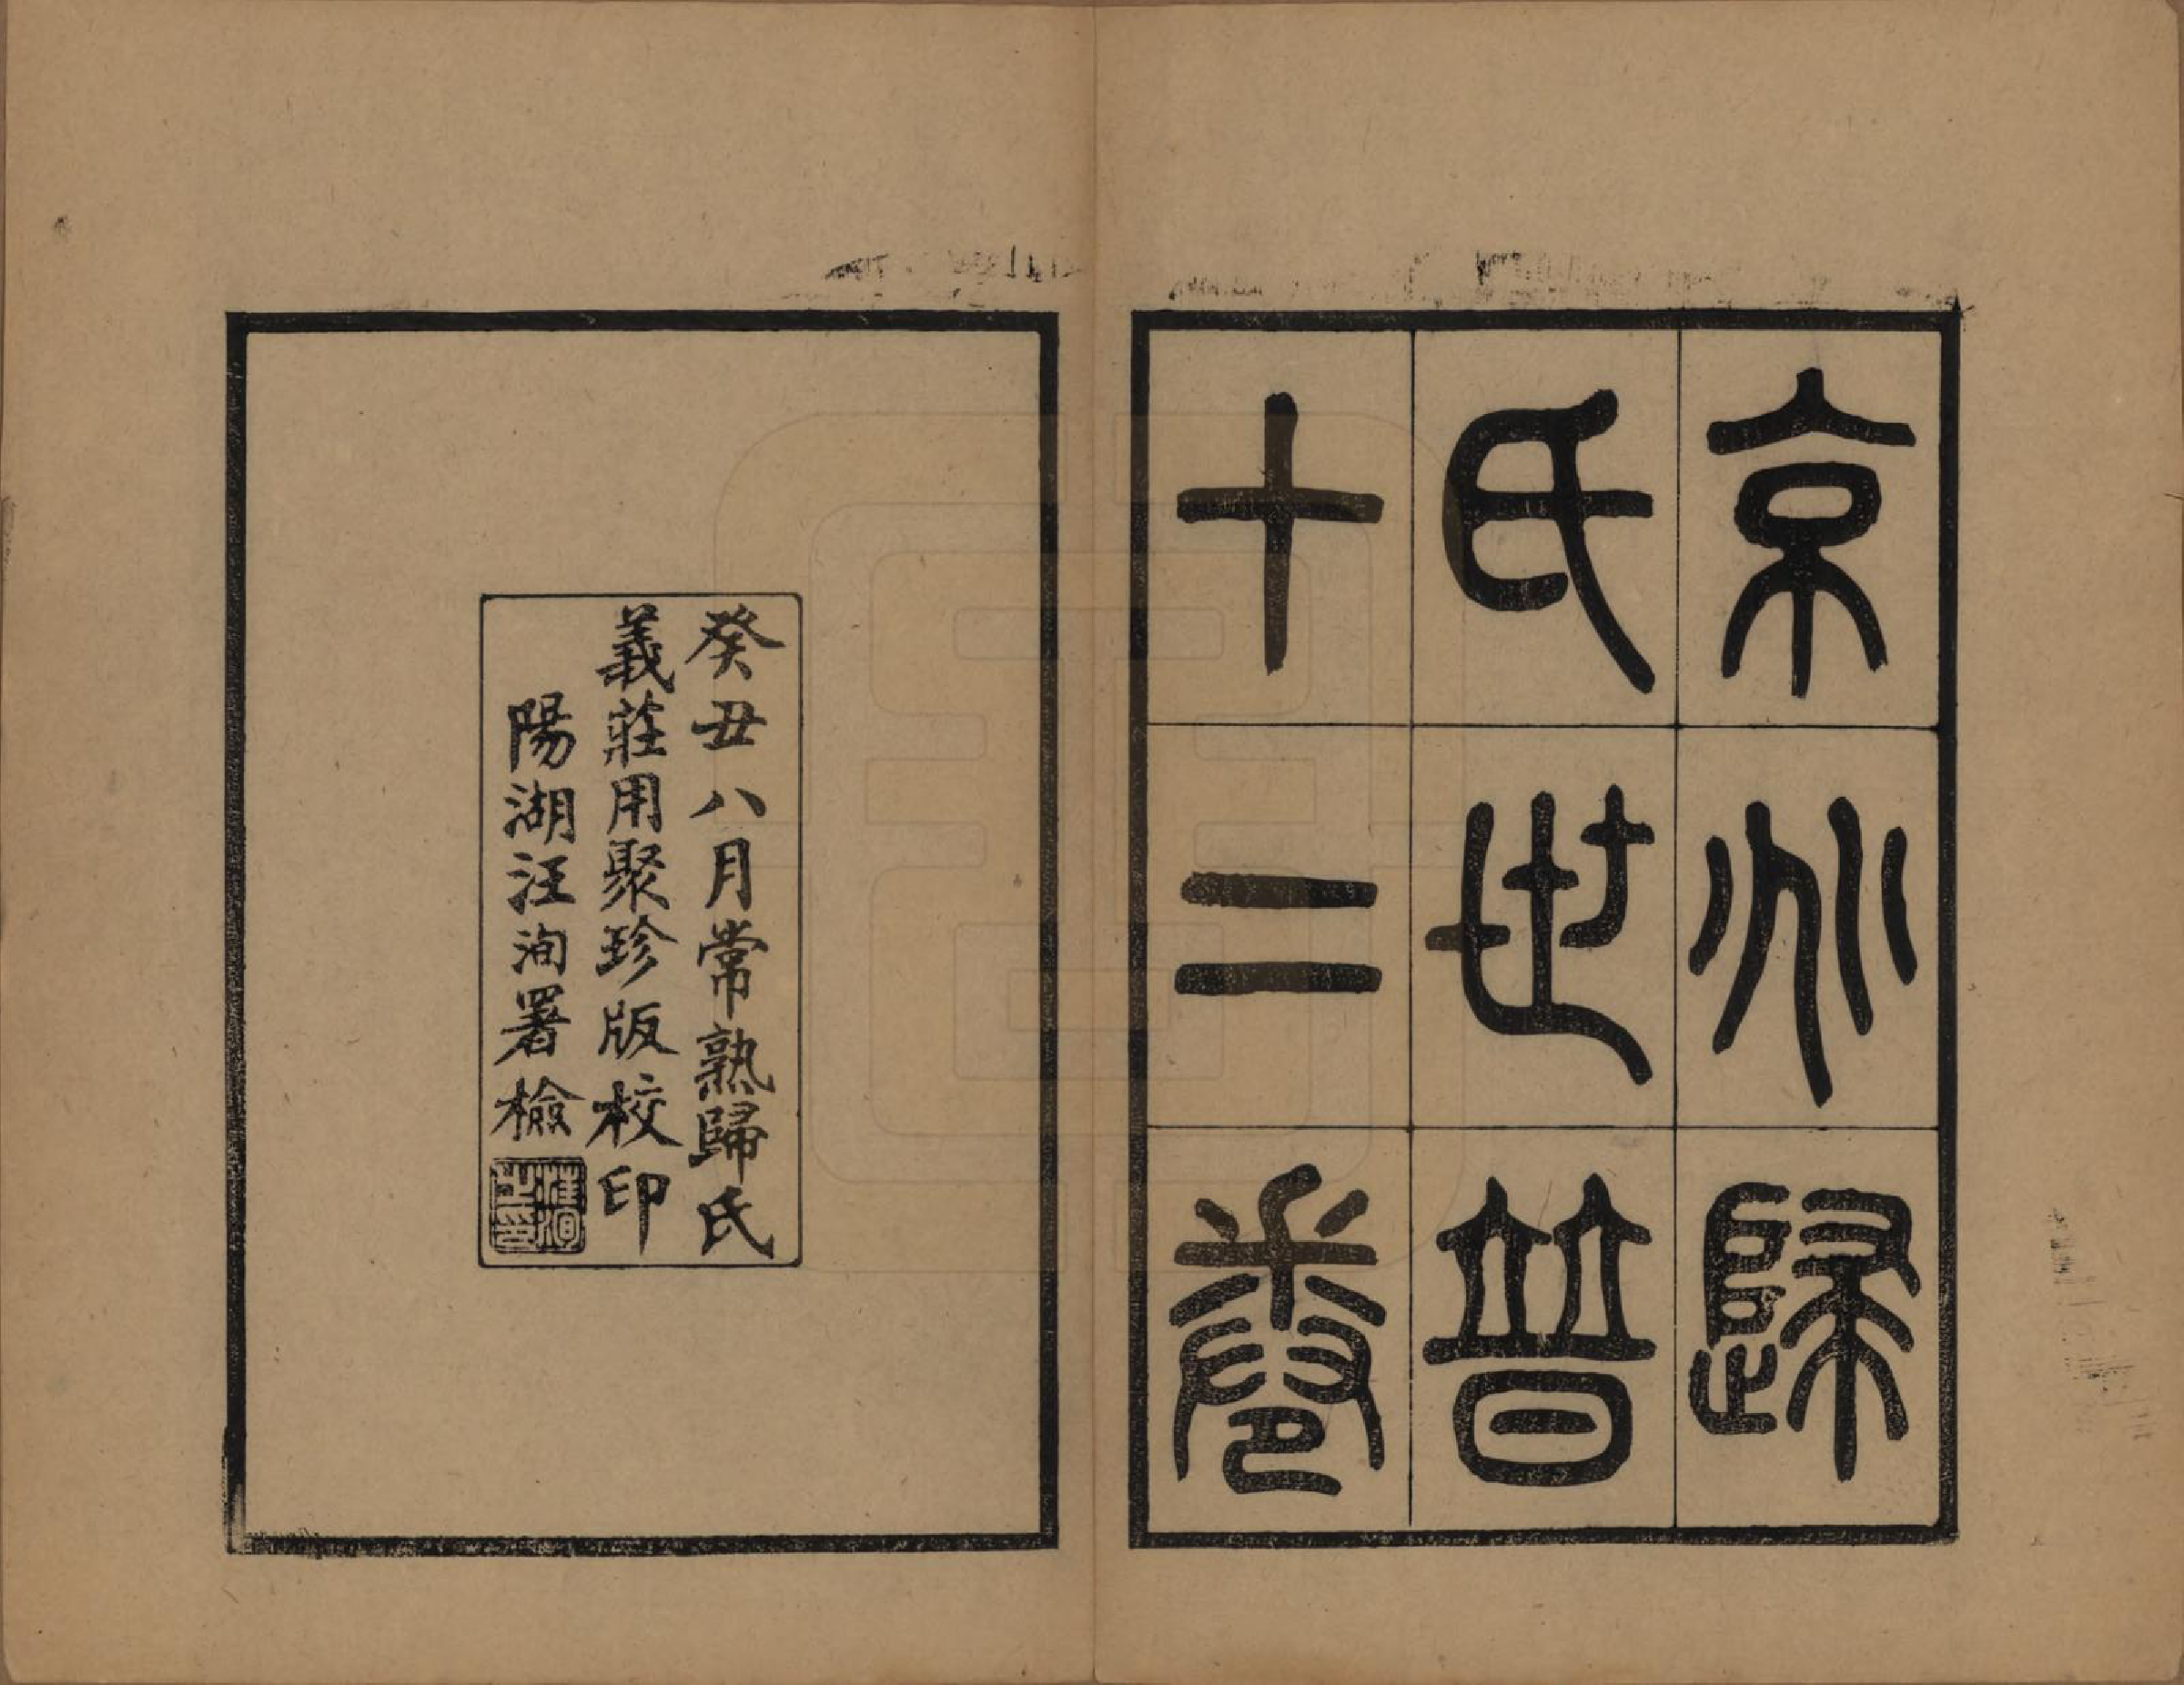 京兆歸
氏世普
十二卷
癸丑八月常熟歸氏
義莊用聚珍版校印
陽湖汪洵署檢
汪洵之印